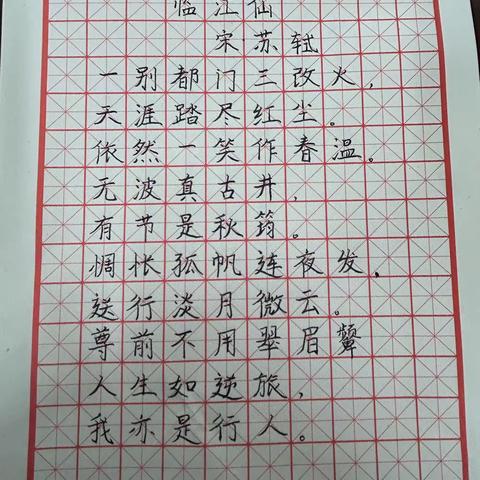 临江仙
宋·苏轼
一别都门三改火,
天涯踏尽红尘。
依然一笑作春温。
无波真古井,
有节是秋筠。
惆怅孤帆连夜发,
送行淡月微云。
尊前不用翠眉颦
人生如逆旅,
我亦是行人。